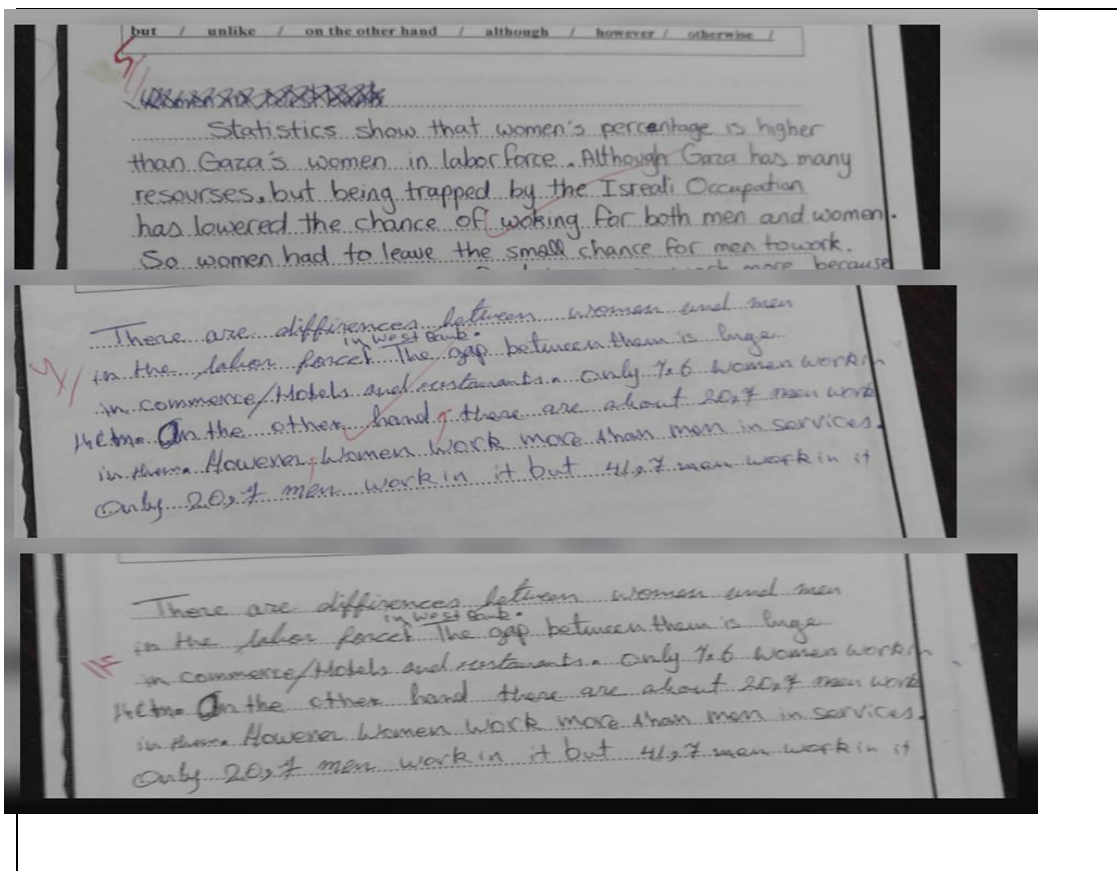 but / unlike / on the other hand / although / however / otherwise /
5
Statistics show that women's percentage is higher
than Gaza's women in labor force. Although Gaza has many
resourses, but being trapped by the Isreali Occupation
has lowered the chance of woking for both men and women.
So women had to leave the small chance for men to work.
more because
There are diffirences between women and men
in west Bank.
in the labor force. The gap between them is huge
in commerce/Hotels and restaurants. only 7.6 women work in
On the other hand, there are about 20,7 men work
in them. However, Women work more than men in services.
Only 20,7 men work in it but 41,7 men work in it
There are diffirences between women and men
in west Bank.
in the labor force. The gap between them is huge
in commerce/Hotels and restaurants. only 7.6 women work in
On the other hand there are about 20,7 men work
in them. However Women work more than men in services.
Only 20,7 men work in it but 41,7 men work in it